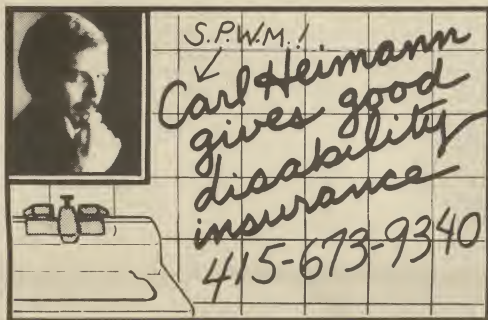 S.P.W.M.!
Carl Heimann
gives good
disability
insurance
415-673-9340